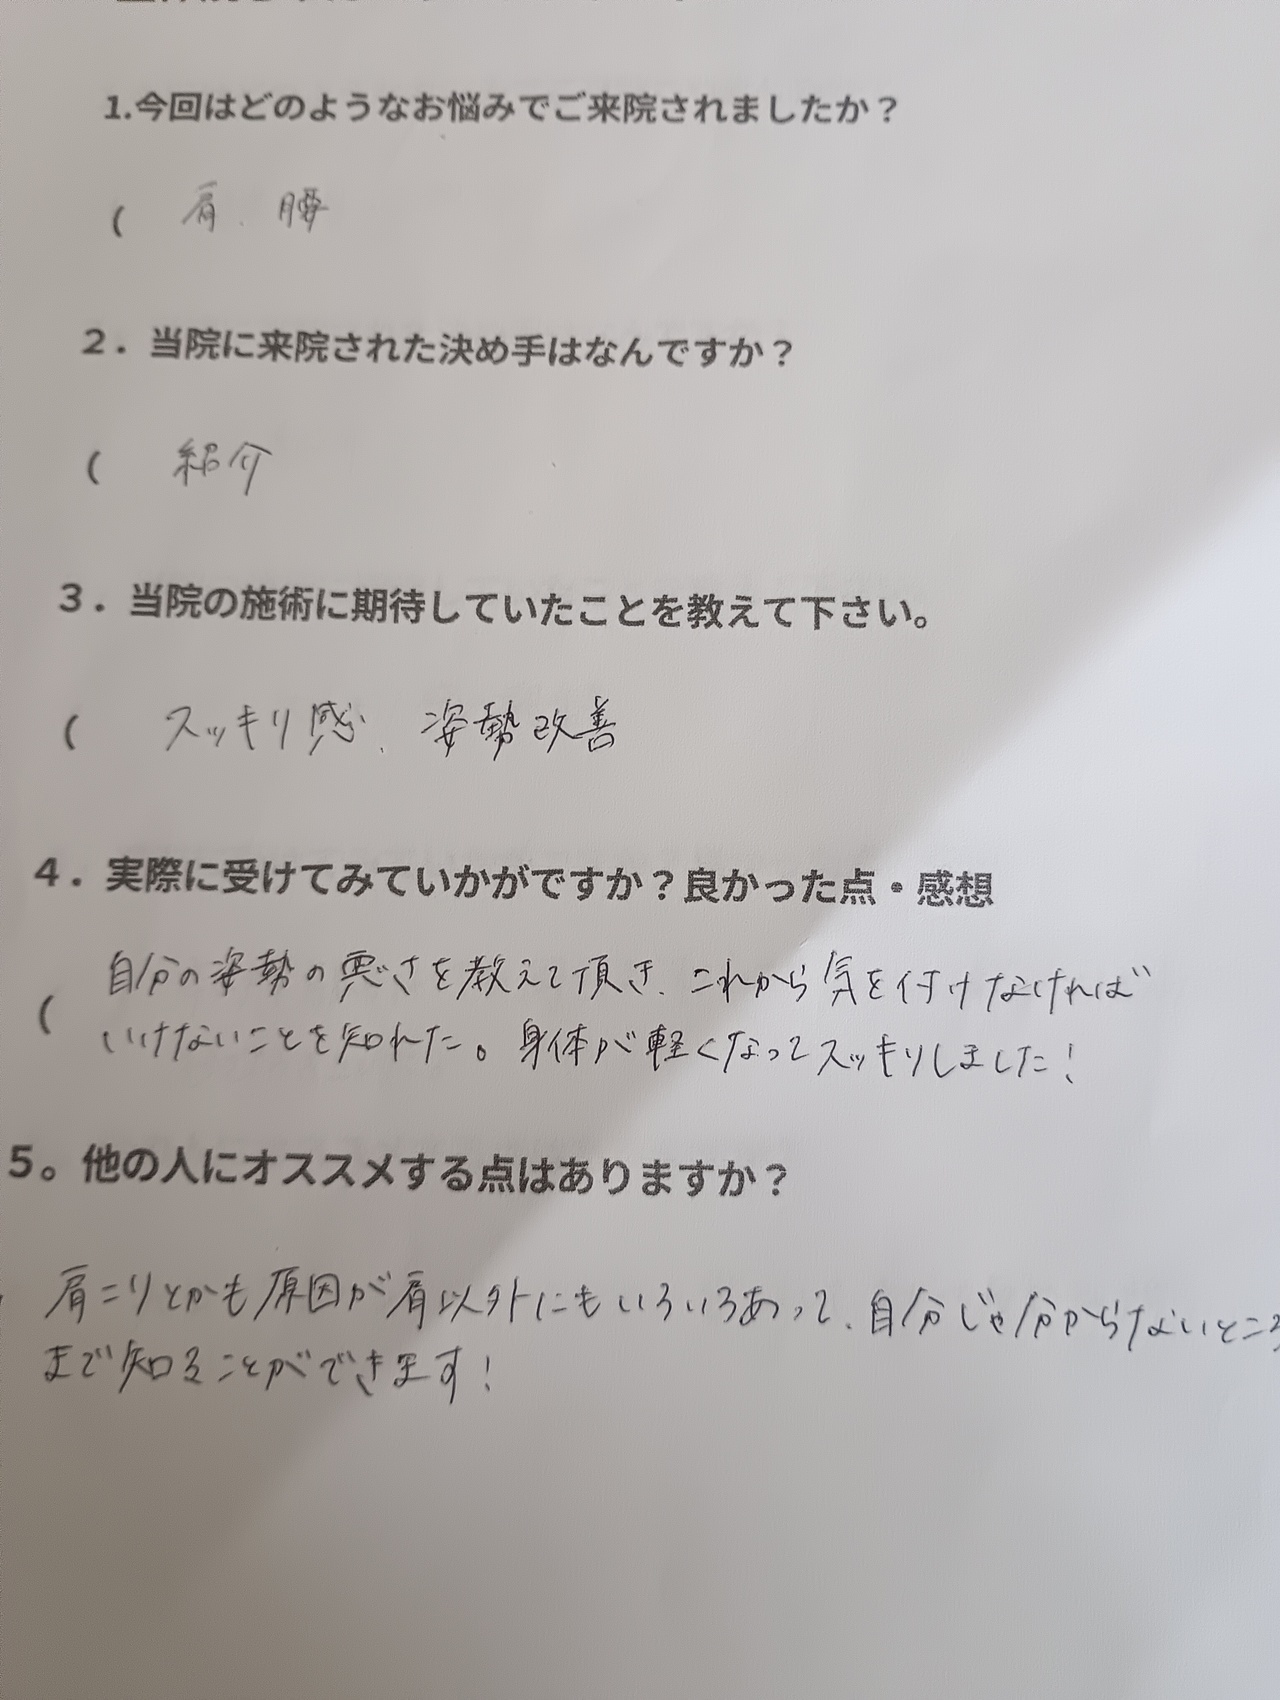 1.今回はどのようなお悩みでご来院されましたか？
( 肩、腰
２．当院に来院された決め手はなんですか？
( 紹介
３．当院の施術に期待していたことを教えて下さい。
( スッキリ感、姿勢改善
４．実際に受けてみていかがですか？良かった点・感想
( 自分の姿勢の悪さを教えて頂き、これから気を付けなければ
いけないことを知れた。身体が軽くなってスッキリしました！
５。他の人にオススメする点はありますか？
肩こりとかも原因が肩以外にもいろいろあって、自分じゃ分からないところ
まで知ることができます！